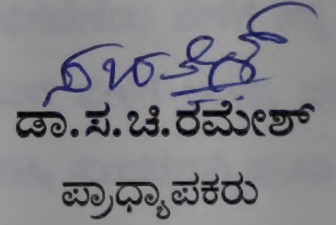 ಡಾ.ಸ.ಚಿ.ರಮೇಶ್
ಪ್ರಾಧ್ಯಾಪಕರು